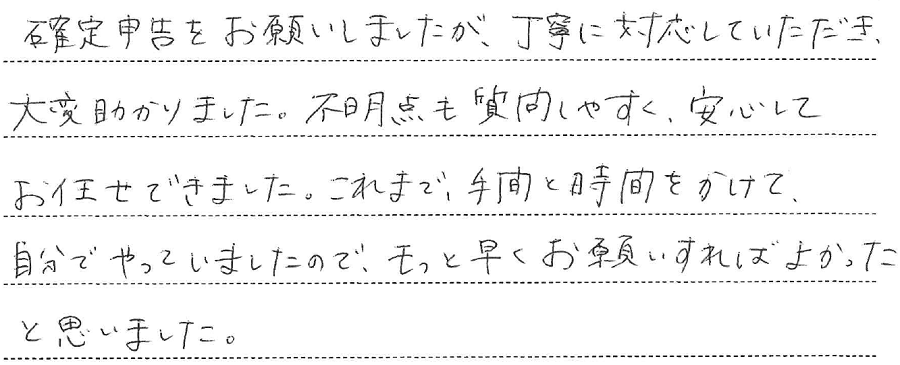 確定申告をお願いしましたが、丁寧に対応していただき、
大変助かりました。不明点も質問しやすく、安心して
お任せできました。これまで、手間と時間をかけて、
自分でやっていましたので、もっと早くお願いすればよかった
と思いました。